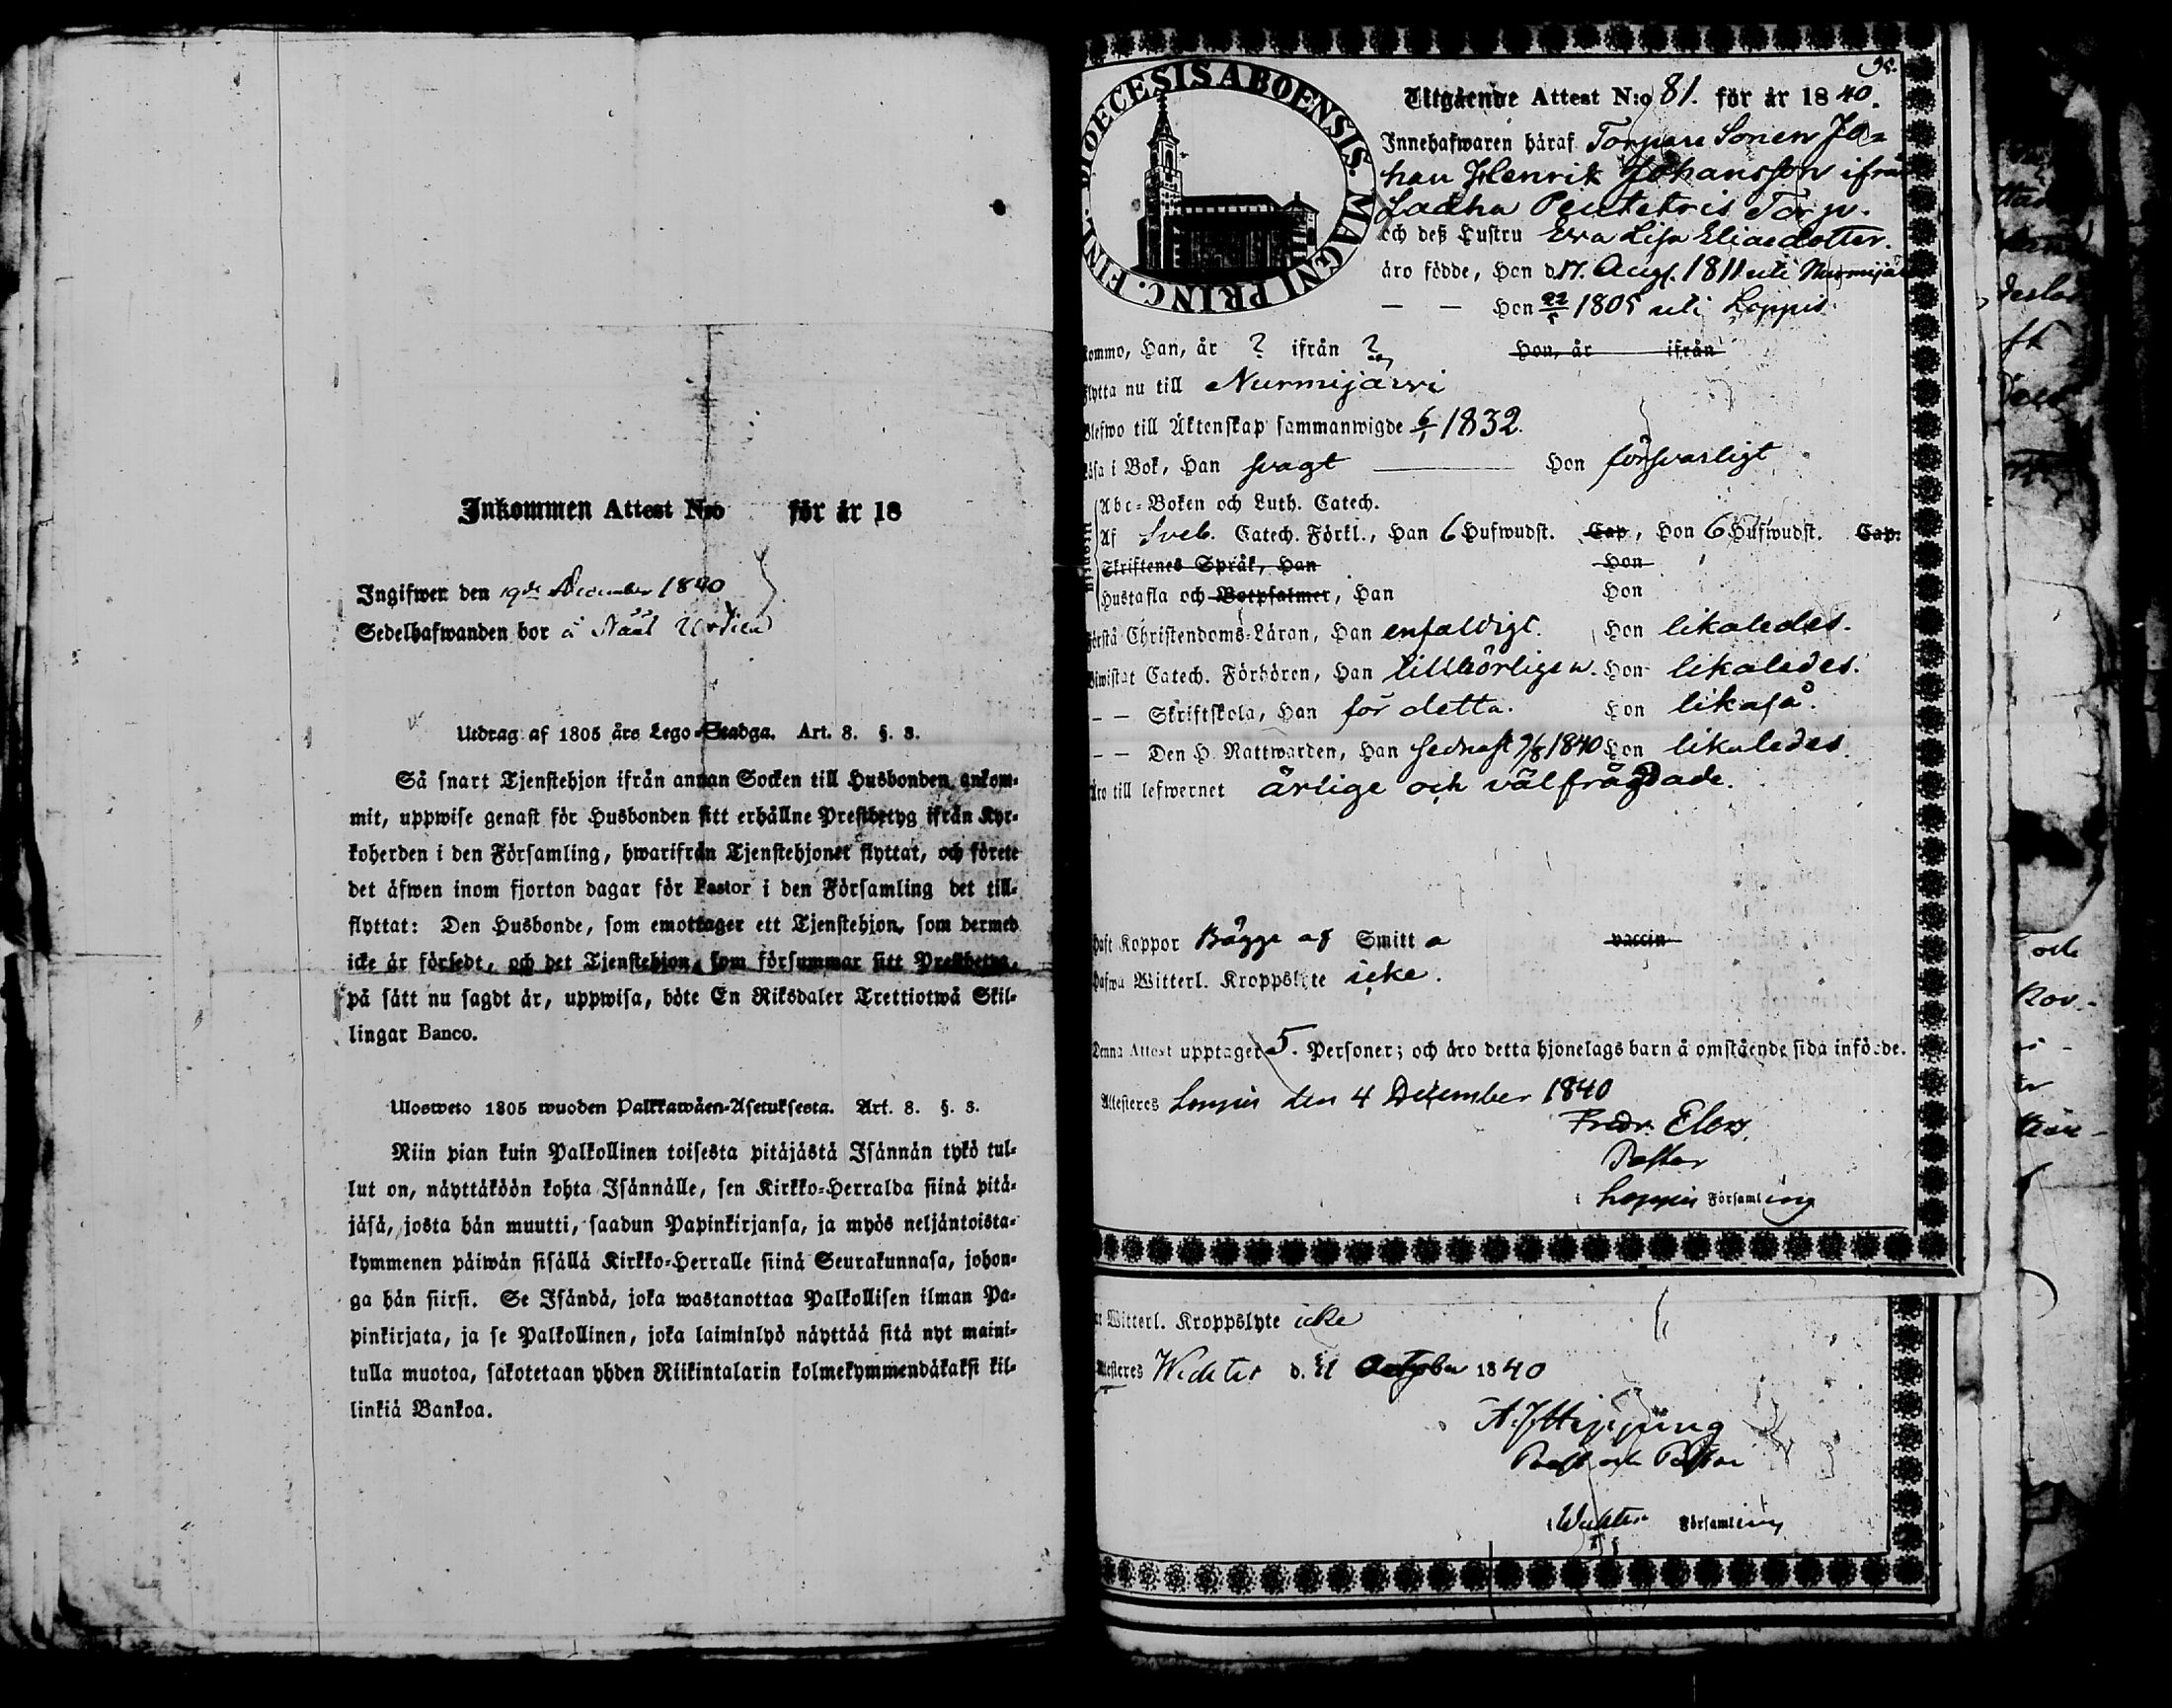 Inkommen Attest N:o för år 18
Ingifwen den 19de December 1840
Sedelhafwanden bor å
Utdrag af 1805 års Lego-Stadga. Art. 8. §. 8.
Så snart Tjenstehjon ifrån annan Socken till Husbonden ankom-
mit, uppwise genast för Husbonden sitt erhållne Prestbetyg ifrån Kyr-
koherden i den Församling, hwarifrån Tjenstehjonet flyttat, och förete
det äfwen inom fjorton dagar för Pastor i den Församling det till-
flyttat: Den Husbonde, som emottager ett Tjenstehjon, som dermed
icke är försedt, och det Tjenstehjon, som försummar sitt Prestbetyg,
på sätt nu sagdt är, uppwisa, böte En Riksdaler Trettiotwå Skil-
lingar Banco.
Ulosweto 1805 wuoden Palkkawäen-Asetuksesta. Art. 8. §. 8.
Niin pian kuin Palkollinen toisesta pitäjästä Isännän tykö tul-
lut on, näyttäköön kohta Isännälle, sen Kirkko-Herralda siinä pitä-
jäsä, josta hän muutti, saadun Papinkirjansa, ja myös neljäntoista-
kymmenen päiwän sisällä Kirkko-Herralle siinä Seurakunnasa, johon-
ga hän siirsi. Se Isändä, joka wastanottaa Palkollisen ilman Pa-
pinkirjata, ja se Palkollinen, joka laiminlyö näyttää sitä nyt maini-
tulla muotoa, sakotetaan yhden Riikintalarin kolmekymmendäkaksi kil-
linkiä Bankoa.
DIOECESIS ABOENSIS. MAGNI PRINC. FINL.
Utgående Attest N:o 81. för år 1840.
Innehafwaren häraf Torpare Sonen Jo-
han Henrik Johansson ifrån
Ladha Penteteris Torp.
och deß Hustru Eva Lisa Eliaedotter.
äro födde, Han d 17. Aug. 1811 uti Nurmijä
— — Hon 22/5 1805 uti Loppis
kommo, Han, år ? ifrån ? Hon, år ifrån
flytta nu till Nurmijärvi
Blefwo till Äktenskap sammanwigde 6/1 1832.
läsa i Bok, Han svagt — Hon försvarligt
Abc-Boken och Luth. Catech.
Af Sveb. Catech. Förkl., Han 6 Hufwudst. Cap, Hon 6 Hufwudst. Cap.
Skriftenes Språk, Han Hon
Hustafla och Botpsalmer, Han Hon
Förstå Christendoms-Läran, Han enfaldigt. Hon likaledes.
Biwistat Catech. Förhören, Han tillbörligen. Hon likaledes.
— — Skriftskola, Han för detta. Hon likaså.
— — Den H. Nattwarden, Han sednast 9/8 1840 Hon likaledes
Äro till lefwernet ärlige och välfrägdade.
haft Koppor Bägge af Smitta vaccin
hafwa Witterl. Kroppslyte icke.
Denna Attest upptager 5. Personer; och äro detta hjonelags barn å omstående sida införde.
Attesteras Loppis den 4 December 1840
Fredr.
Pastor
i Loppis Församling
Witterl. Kroppslyte icke
Attesteras Wichtis d. October 1840
Prost och Pastor
i Wichtis Församling